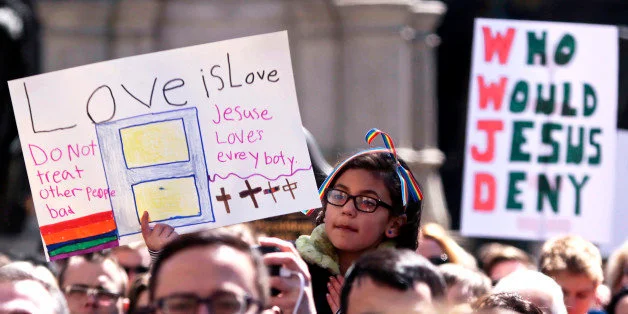 Love is Love
Do Not
treat
other people
bad
Jesuse
Loves
evrey boty.
WHO
WOULD
JESUS
DENY